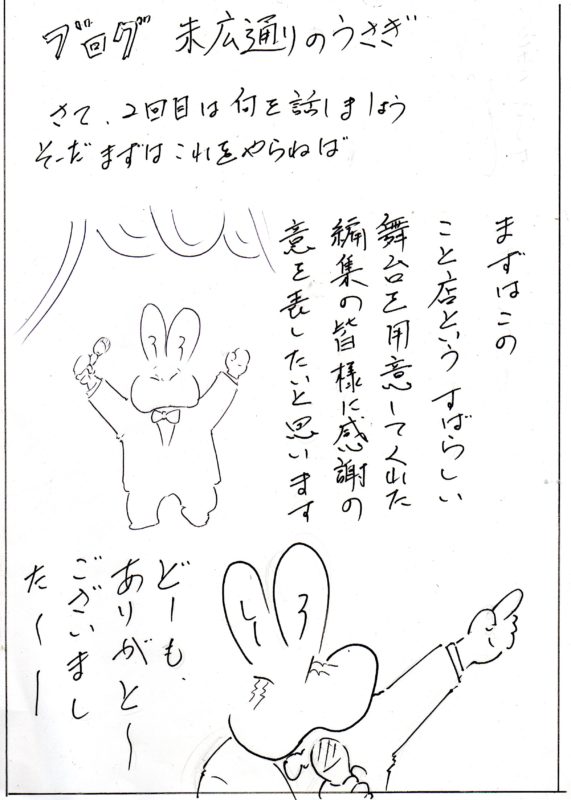 ブログ 末広通りのうさぎ
さて、2回目は何を話しましょう
そーだまずはこれをやらねば
まずはこの
こと店という すばらしい
舞台を用意してくれた
編集の皆様に感謝の
意を表したいと思います
どーも、
ありがと〜
ございまし
た〜ー